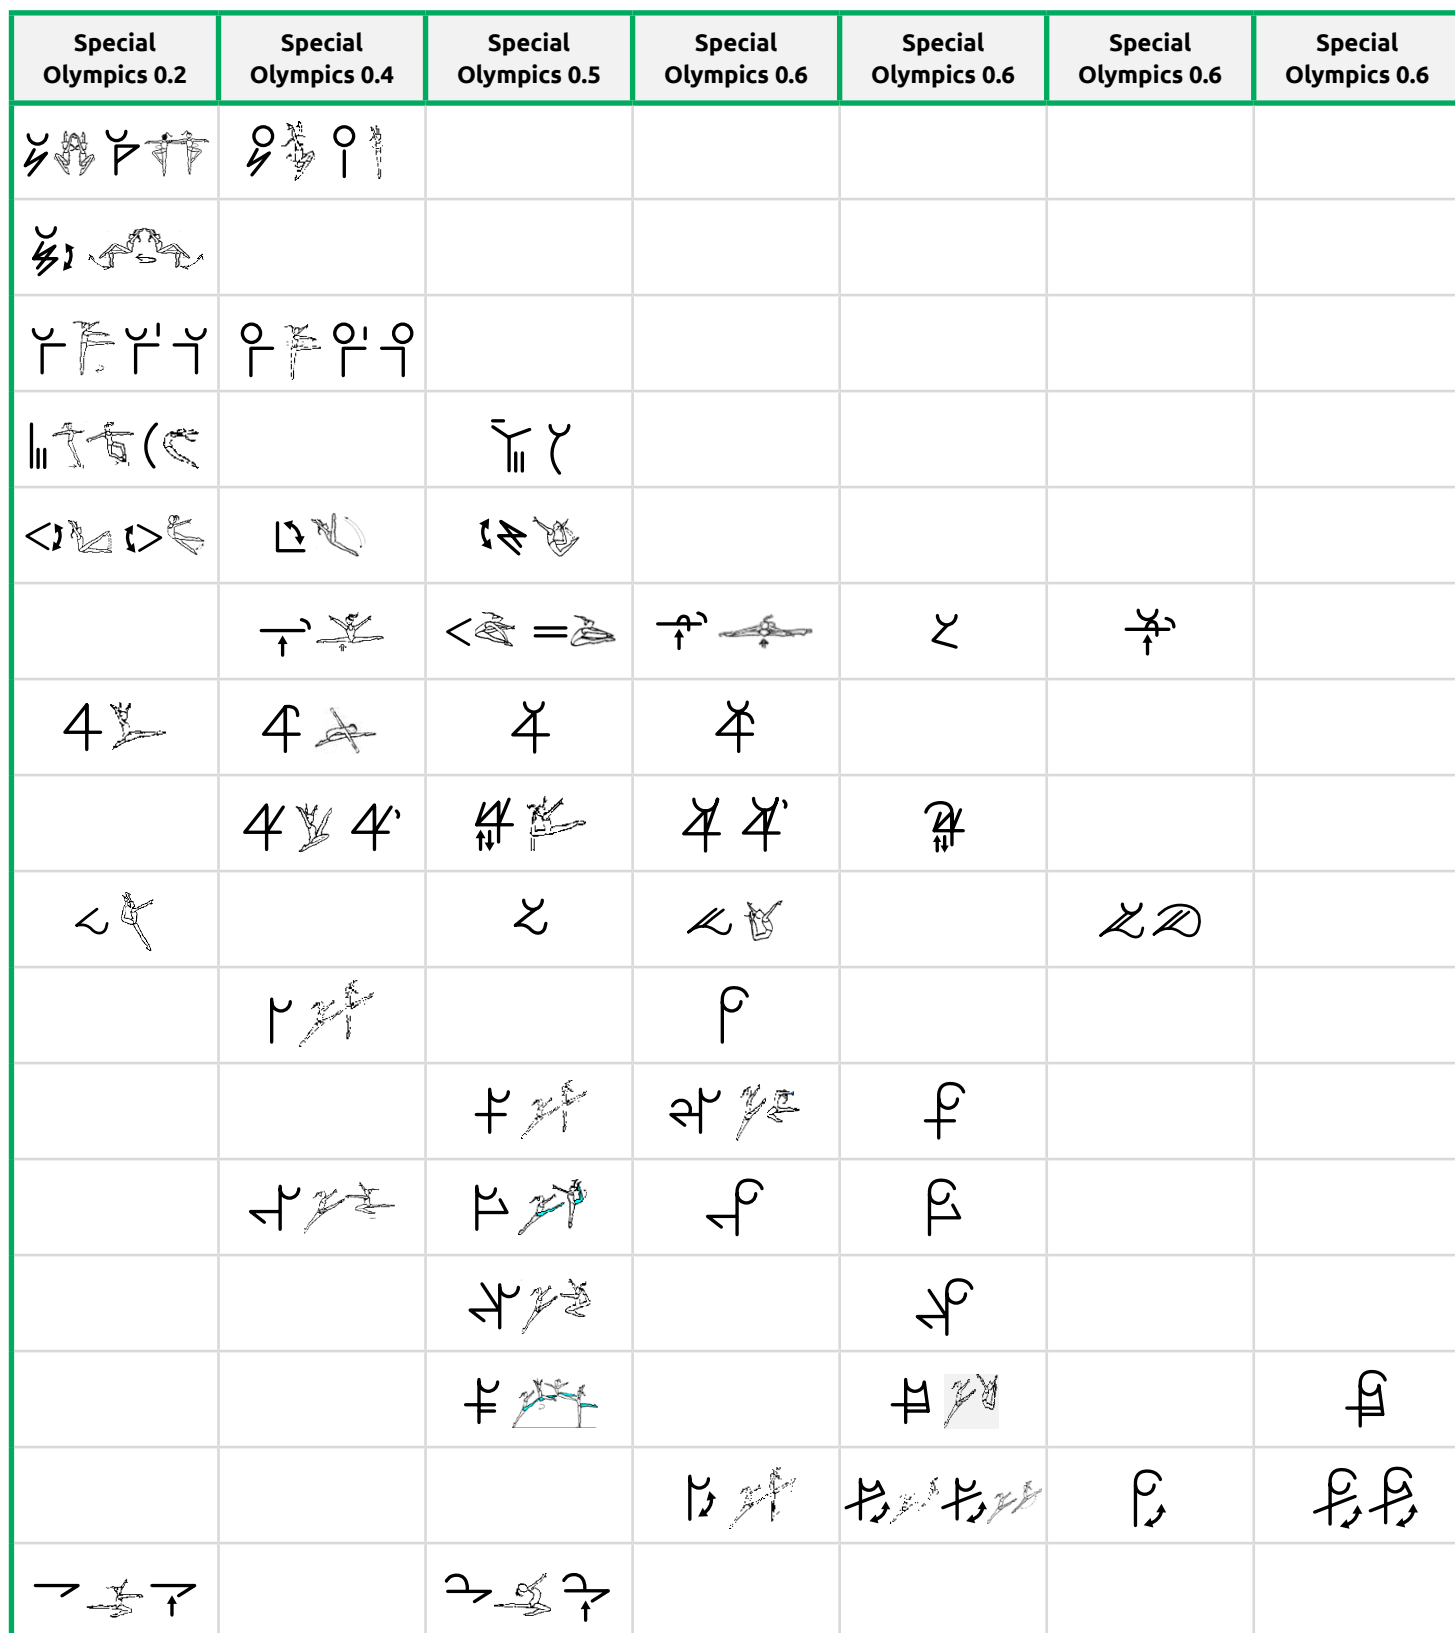 Special
Olympics 0.2
Special
Olympics 0.4
Special
Olympics 0.5
Special
Olympics 0.6
Special
Olympics 0.6
Special
Olympics 0.6
Special
Olympics 0.6